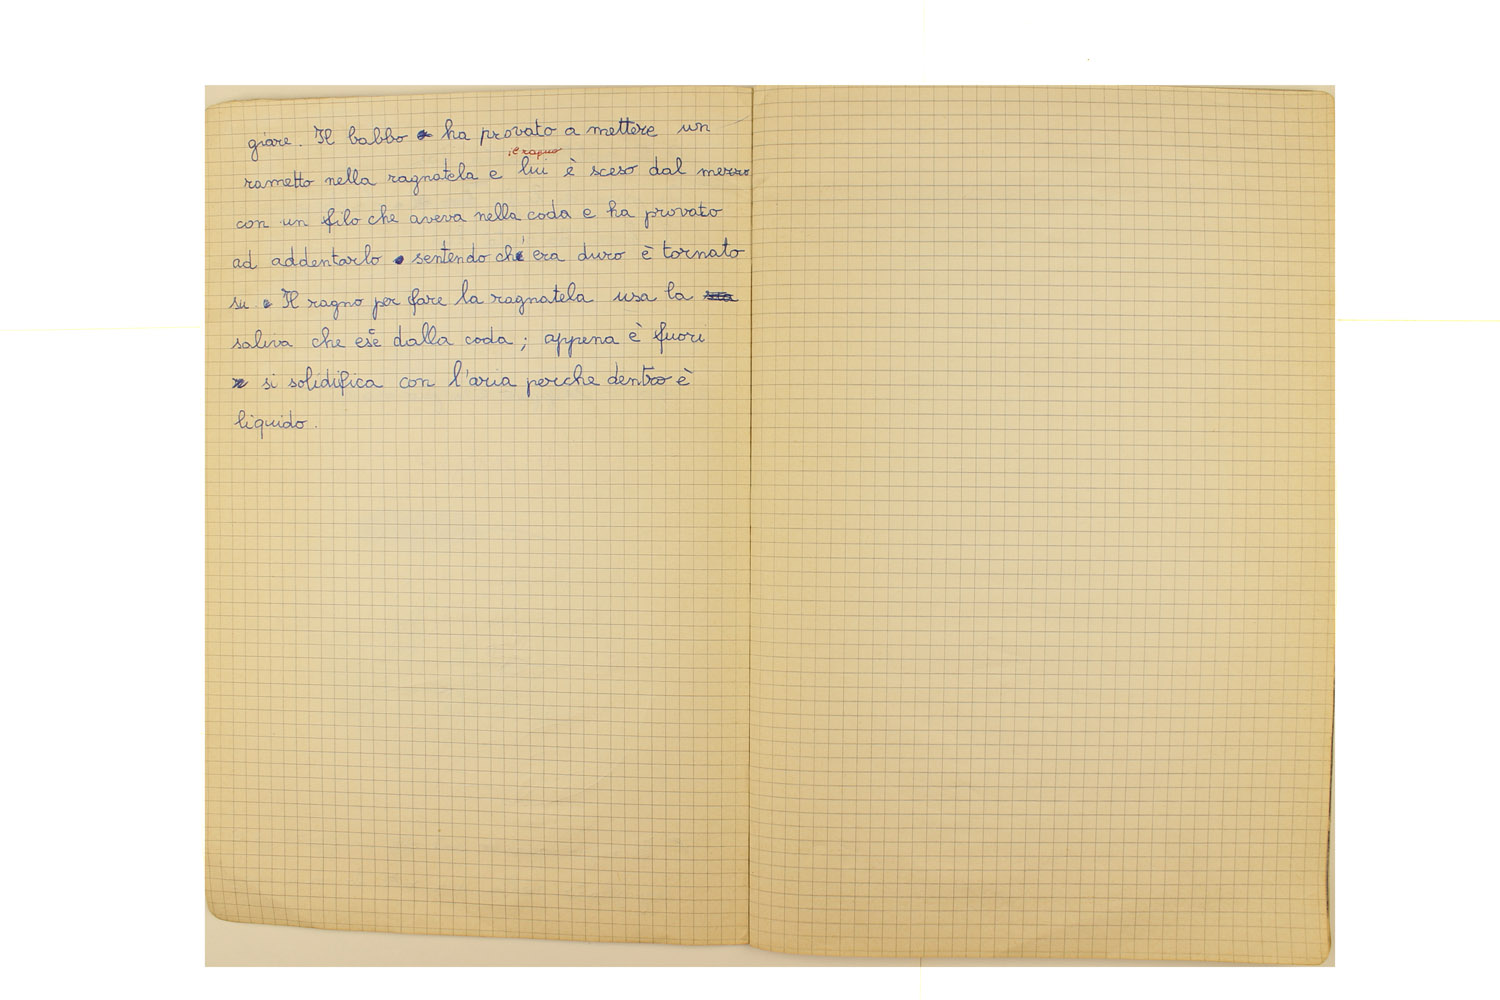 giare. Il babbo ha provato a mettere un
il ragno
rametto nella ragnatela e lui è sceso dal mezzo
con un filo che aveva nella coda e ha provato
ad addentarlo sentendo che era duro è tornato
su. Il ragno per fare la ragnatela usa la
saliva che esce dalla coda; appena è fuori
si solidifica con l'aria perche dentro è
liquido.